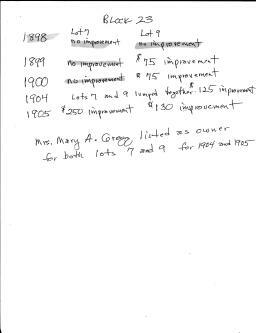 BLOCK 23
Lot 7 Lot 9
1898 no improvement no improvement
1899 no improvement $75 improvement
1900 no improvement $75 improvement
1904 Lots 7 and 9 lumped together $125 improvement
1905 $250 improvement $130 improvement
Mrs. Mary A. Gregg listed as owner
for both lots 7 and 9 for 1904 and 1905